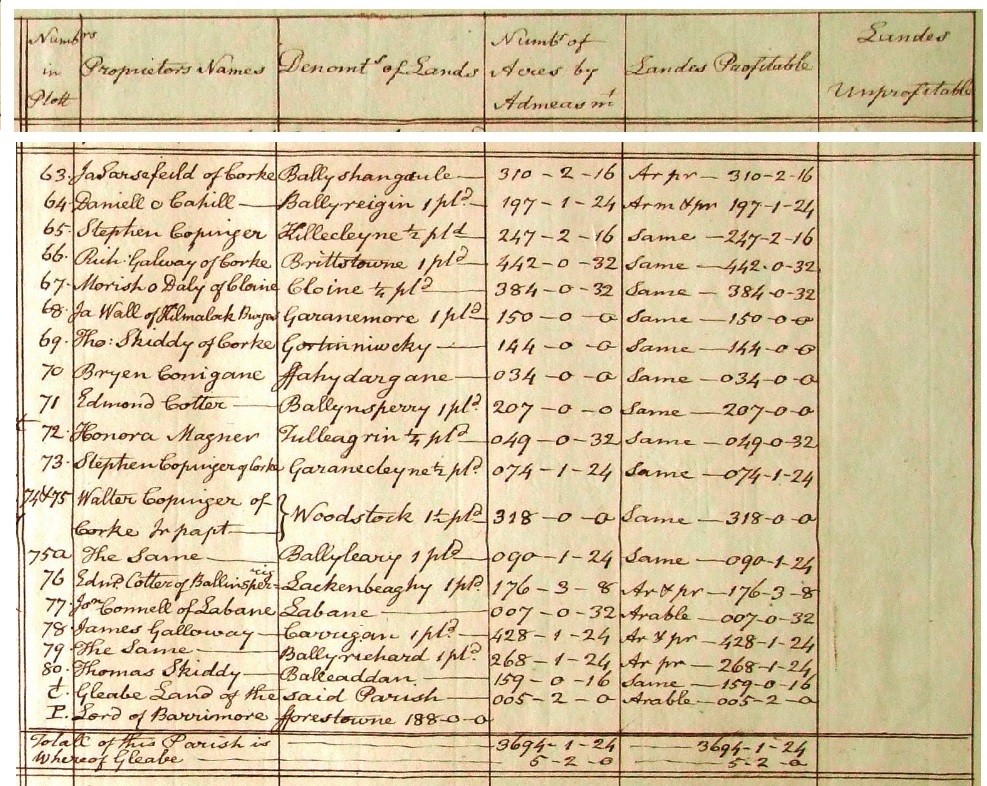 Numbrs in Plott | Proprietors Names | Denomts of Lands | Numbr of Acres by Admeasmt | Landes Profitable | Landes Unprofitable
63. Ja Sarsefeild of Corke | Ballyshangaule — | 310-2-16 | Ar pr — 310-2-16
64 Daniell o Cahill — | Ballyreigin 1 pld — | 197-1-24 | Arm & pr 197-1-24
65 Stephen Copinger | Killecleyne ½ pld — | 247-2-16 | Same — 247-2-16
66. Rich. Galway of Corke | Brittstowne 1 pld — | 442-0-32 | Same — 442-0-32
67. Morish o Daly of Cloine | Cloine ¼ pld — | 384-0-32 | Same — 384-0-32
68. Ja Wall of Kilmalack Burges | Garanemore 1 pld | 150-0-0 | Same — 150-0-0
69. Tho: Skiddy of Corke | Gortinniwcky — | 144-0-0 | Same — 144-0-0
70 Bryen Conigane | ffahydargane — | 034-0-0 | Same — 034-0-0
71 Edmond Cotter — | Ballynsperry 1 pld | 207-0-0 | Same — 207-0-0
72. Honora Magner | Tulleagrin ¼ pld — | 049-0-32 | Same — 049-0-32
73. Stephen Copinger of Corke | Garanecleyne ½ pld | 074-1-24 | Same — 074-1-24
74&75 Walter Copinger of
Corke Ir papt — } Woodstock 1½ pld | 318-0-0 | Same — 318-0-0
75a The Same — | Ballyleary 1 pld — | 090-1-24 | Same — 090-1-24
76 Edmd. Cotter of Ballinsperrig | Lackenbeaghy 1 pld | 176-3-8 | Ar & pr — 176-3-8
77. Jon Connell of Labane | Labane — | 007-0-32 | Arable — 007-0-32
78. James Galloway — | Carrigan 1 pld — | 428-1-24 | Ar & pr — 428-1-24
79 The Same — | Ballyrichard 1 pld | 268-1-24 | Ar pr — 268-1-24
80. Thomas Skiddy — | Balleaddan — | 159-0-16 | Same — 159-0-16
¢. Gleabe Land of the said Parish — | 005-2-0 | Arable — 005-2-0
P. Lord of Barrimore | fforestowne 188-0-0
Totall of this Parish is — | 3694-1-24 | — 3694-1-24
Whereof Gleabe — | 5-2-0 | — 5-2-0